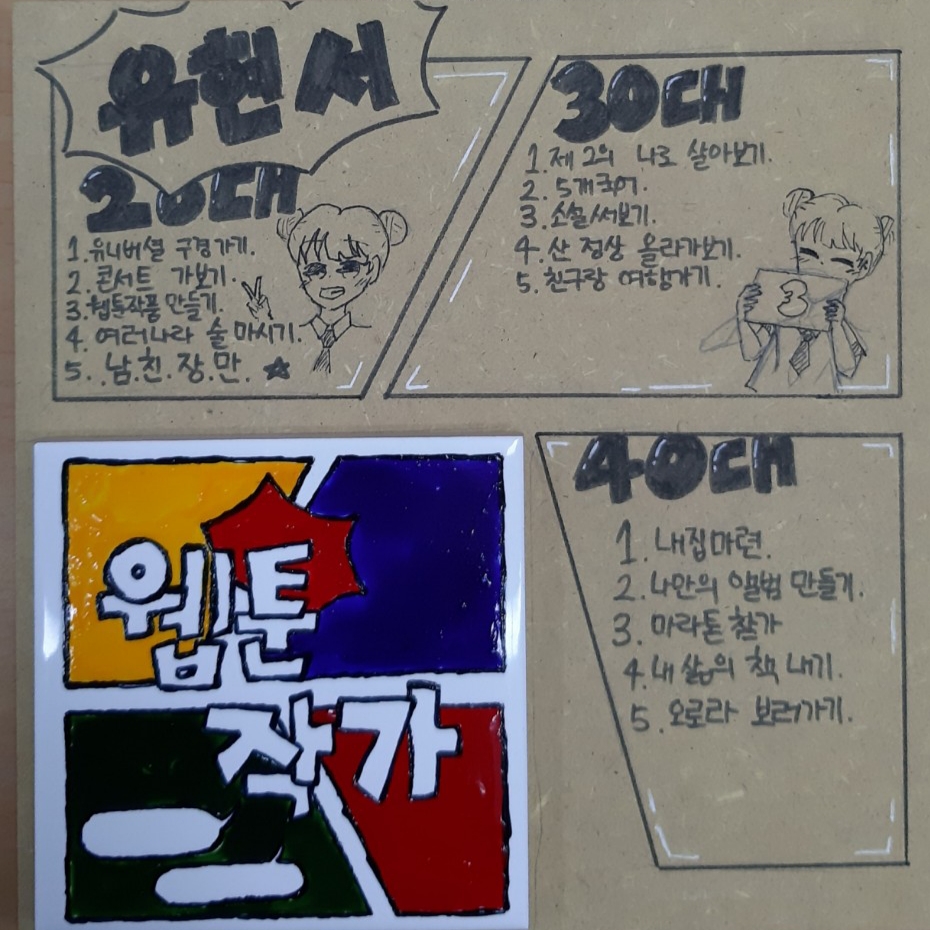 유현서
20대
1. 유니버셜 구경가기.
2. 콘서트 가보기.
3. 웹툰작품 만들기.
4. 여러나라 술 마시기.
5. 남.친.장.만.☆
30대
1. 제 2의 나로 살아보기.
2. 5개국어.
3. 소설써보기.
4. 산 정상 올라가보기.
5. 친구랑 여행가기.
3
웹툰
작가
40대
1. 내집마련.
2. 나만의 앨범 만들기.
3. 마라톤 참가
4. 내 삶의 책 내기.
5. 오로라 보러가기.